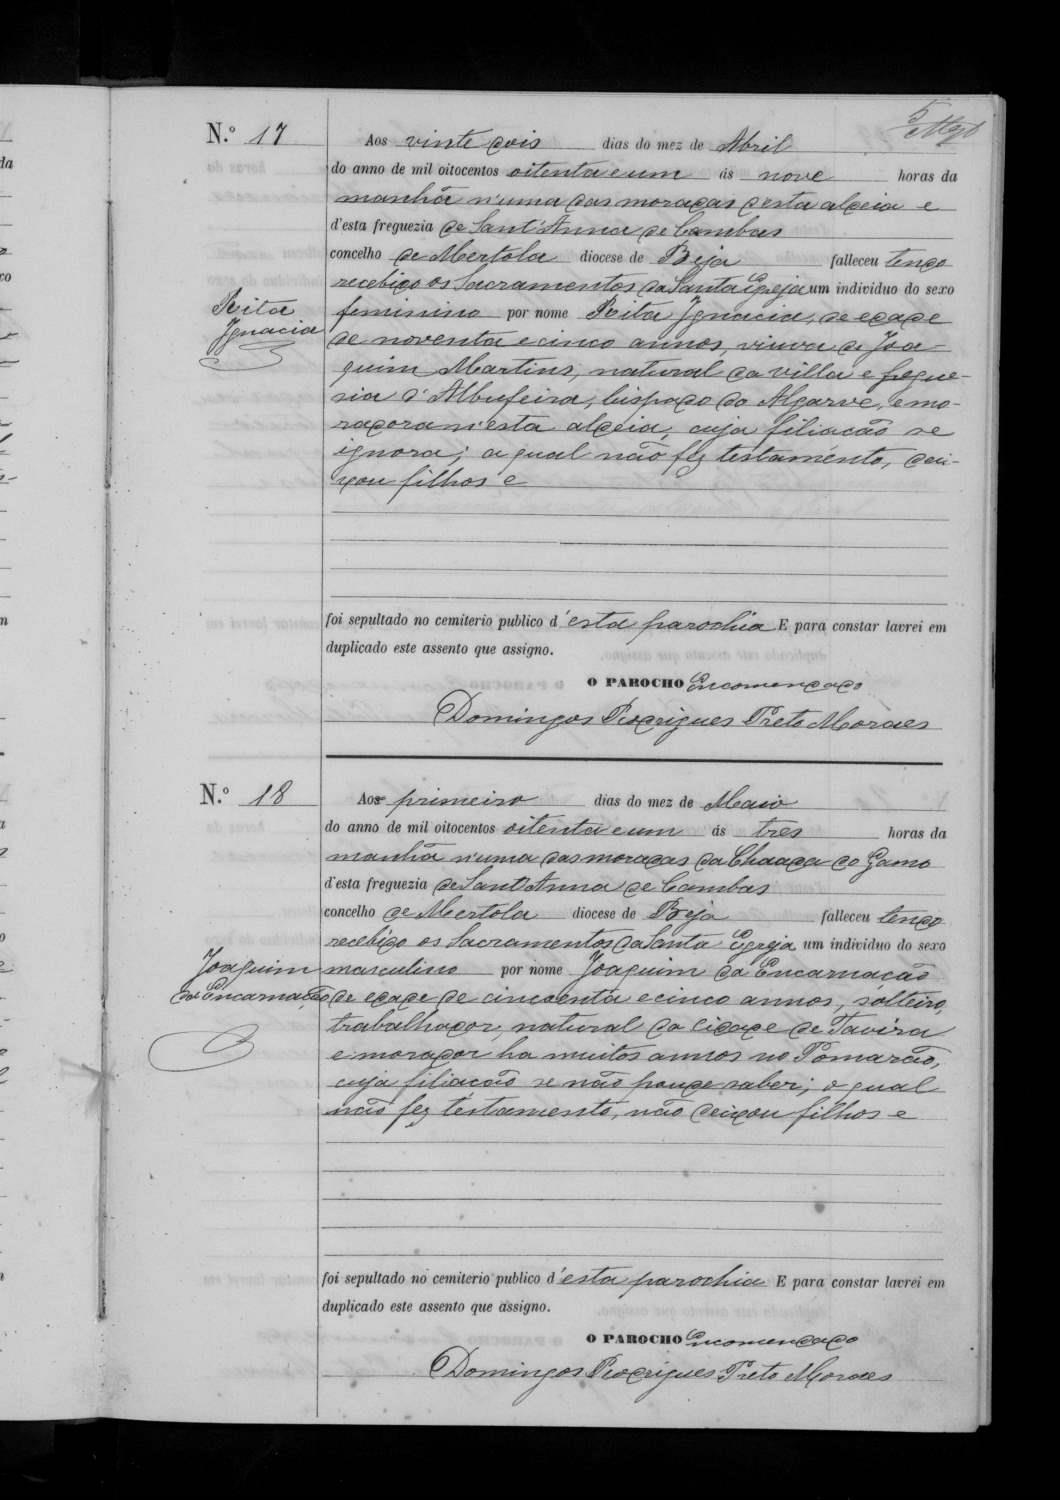 5
N.º 17
Aos vinte dois dias do mez de Abril
do anno de mil oitocentos oitenta e um ás nove horas da
manhã n'uma das moradas d'esta aldeia e
d'esta freguezia de Sant'Anna de Cambas
concelho de Mertola diocese de Beja falleceu tendo
recebido os Sacramentos da Santa Egreja um individuo do sexo
Rita
Ignacia
feminino por nome Rita Ignacia, de edade
de noventa e cinco annos, viuva de Joa-
quim Martins, natural da villa e fregue-
sia d'Albufeira, bispado do Algarve, e mo-
radora n'esta aldeia, cuja filiacão se
ignora; a qual não fez testamento, dei-
xou filhos e
foi sepultado no cemiterio publico d'esta parochia E para constar lavrei em
duplicado este assento que assigno.
O PAROCHO Encomendado
Domingos Rodrigues Preto Moraes
N.º 18
Aos primeiro dias do mez de Maio
do anno de mil oitocentos oitenta e um ás tres horas da
manhã n'uma das moradas da Chaada do Gamo
d'esta freguezia de Sant'Anna de Cambas
concelho de Mertola diocese de Beja falleceu tendo
recebido os Sacramentos da Santa Egreja um individuo do sexo
Joaquim
da Encarnação
masculino por nome Joaquim da Encarnacão
de edade de cincoenta e cinco annos, solteiro,
trabalhador, natural da cidade de Tavira
e morador ha muitos annos no Pomarão,
cuja filiacão se não poude saber; o qual
não fez testamento, não deixou filhos e
foi sepultado no cemiterio publico d'esta parochia E para constar lavrei em
duplicado este assento que assigno.
O PAROCHO Encomendado
Domingos Rodrigues Preto Moraes